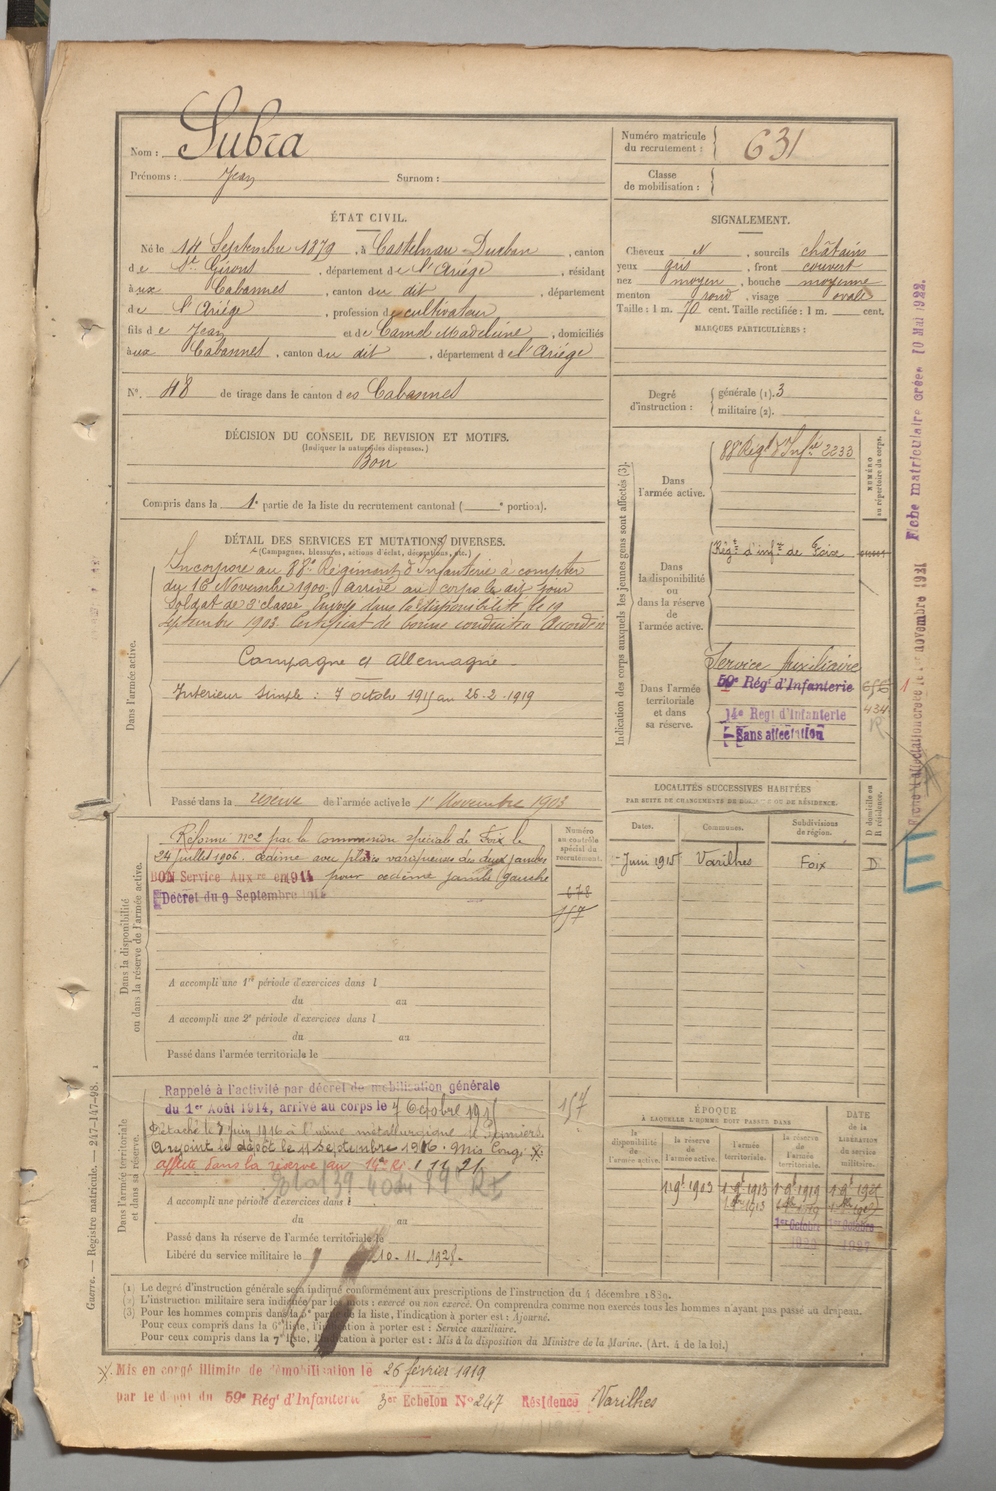 Nom : Subra
Prénoms : Jean Surnom :
Numéro matricule du recrutement : 631
Classe de mobilisation :
ÉTAT CIVIL.
Né le 14 Septembre 1879, à Castelnau-Durban, canton
de St Girons, département de l'Ariège, résidant
à ux Cabannes, canton du dit, département
de l'Ariège, profession de cultivateur
fils de Jean et de Camel Madeleine, domiciliés
à ux Cabannes, canton du dit, département de l'Ariège
N° 48 de tirage dans le canton des Cabannes
SIGNALEMENT.
Cheveux N, sourcils châtains
yeux gris, front couvert
nez moyen, bouche moyenne
menton rond, visage ovale
Taille : 1 m. 70 cent. Taille rectifiée : 1 m. cent.
MARQUES PARTICULIÈRES :
Degré d'instruction : générale (1). 3
militaire (2).
DÉCISION DU CONSEIL DE REVISION ET MOTIFS.
(Indiquer la nature des dispenses.)
Bon
Compris dans la 1e partie de la liste du recrutement cantonal ( e portion).
DÉTAIL DES SERVICES ET MUTATIONS DIVERSES.
(Campagnes, blessures, actions d'éclat, décorations, etc.)
Dans l'armée active.
Incorporé au 88e Régiment d'Infanterie à compter
du 16 Novembre 1900, arrivé au corps le dit jour
Soldat de 2e classe. Envoyé dans la disponibilité le 19
septembre 1903. Certificat de bonne conduite Accordé
Campagne c/ Allemagne
Intérieur simple : 7 octobre 1915 au 26-2-1919
Passé dans la réserve de l'armée active le 1er Novembre 1903
Indication des corps auxquels les jeunes gens sont affectés (3).
NUMÉRO au répertoire du corps.
Dans l'armée active.
88e Régt d'Infie 2233
Dans la disponibilité ou dans la réserve de l'armée active.
Régt d'infie de Foix
Dans l'armée territoriale et dans sa réserve.
Service Auxiliaire
59e Régt d'Infanterie
14e Regt d'Infanterie 434
Sans affectation
Fiche matriculaire créée 10 Mai 1922.
LOCALITÉS SUCCESSIVES HABITÉES
PAR SUITE DE CHANGEMENTS DE DOMICILE OU DE RÉSIDENCE.
Dates. Communes. Subdivisions de région. D domicile ou R résidence.
Juin 1915 Varilhes Foix D
Dans la disponibilité ou dans la réserve de l'armée active.
Numéro au contrôle spécial du recrutement.
Réformé n°2 par la commission spéciale de Foix le
24 juillet 1906. œdème avec plaies variqueuses des deux jambes
BON Service Auxre en 1914 pour œdème jambe gauche
Décret du 9 Septembre 1914
678
157
A accompli une 1re période d'exercices dans l
du au
A accompli une 2e période d'exercices dans l
du au
Passé dans l'armée territoriale le
Dans l'armée territoriale et dans sa réserve.
Rappelé à l'activité par décret de mobilisation générale
du 1er Août 1914, arrivé au corps le 7 Octobre 1915
157
Détaché le 3 juin 1916 à l'usine métallurgique de Pamiers.
Rejoint le dépôt le 11 Septembre 1916. Mis Congé X
affecté dans la réserve au 14e
A accompli une période d'exercices dans l
du au
Passé dans la réserve de l'armée territoriale le
Libéré du service militaire le 10-11-1928.
ÉPOQUE
À LAQUELLE L'HOMME DOIT PASSER DANS
la disponibilité de l'armée active. la réserve de l'armée active. l'armée territoriale. la réserve de l'armée territoriale. DATE DE LA LIBÉRATION DU SERVICE MILITAIRE.
1 9e 1903 1 9e 1913 1 9e 1919
1er Octobre 1er Octobre
Guerre. — Registre matricule. — 247-147-98.
(1) Le degré d'instruction générale sera indiqué conformément aux prescriptions de l'instruction du 4 décembre 1889.
(2) L'instruction militaire sera indiquée par les mots : exercé ou non exercé. On comprendra comme non exercés tous les hommes n'ayant pas passé au drapeau.
(3) Pour les hommes compris dans la 5e partie de la liste, l'indication à porter est : Ajourné.
Pour ceux compris dans la 6e liste, l'indication à porter est : Service auxiliaire.
Pour ceux compris dans la 7e liste, l'indication à porter est : Mis à la disposition du Ministre de la Marine. (Art. 4 de la loi.)
X. Mis en congé illimité de démobilisation le 26 février 1919
par le dépôt du 59e Régt d'Infanterie 3er Echelon N° 247 Résidence Varilhes